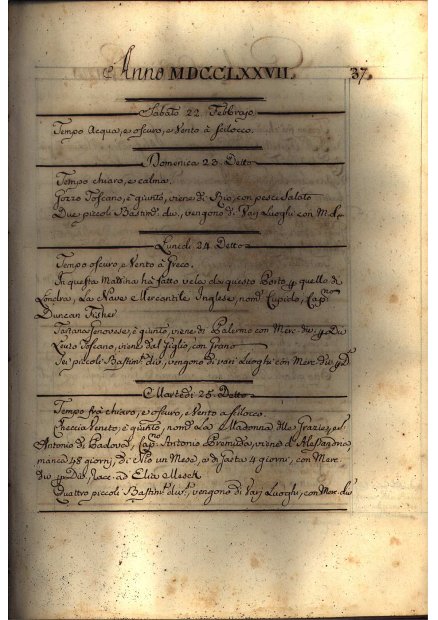 Anno MDCCLXXVII. 37.
Sabato 22. Febbrajo.
Tempo Acqua, e oscuro, e Vento à Scilocco.
Domenica 23. Detto
Tempo chiaro, e calma.
Gozzo Toscano, è giunto, viene di Rio, con pesce Salato
Due piccoli Bastim.ti div., vengono di Varj Luoghi con M.
Lunedì 24. Detto
Tempo oscuro, e Vento à Greco.
In questa Mattina hà fatto vela da questo Porto p quello di
Londra, La Nave Mercantile Inglese, nom.ta Cupido, Cap.no
Duncan Fisher
Tartana Genovese, è giunto, viene di Palermo con Merc. div. p Div.
Leuto Toscano, viene del Giglio, con Grano
Tre piccoli Bastim.ti div., vengono di varj Luoghi con Merc. div. p D.
Martedì 25. Detto
Tempo frà chiaro, e oscuro, e Vento à scilocco.
Checcia Veneto, è giunto, nom.ta La Madonna delle Grazie, e S.
Antonio di Padova, Cap.no Antonio Premuda, viene d'Alessandria,
manca 48 giorni, di Tiro un Mese, e di Gaeta 4 giorni, con Merc.
div. p Div., race. ad
Quattro piccoli Bastim.ti div., vengono di Varj Luoghi, con Merc. div.